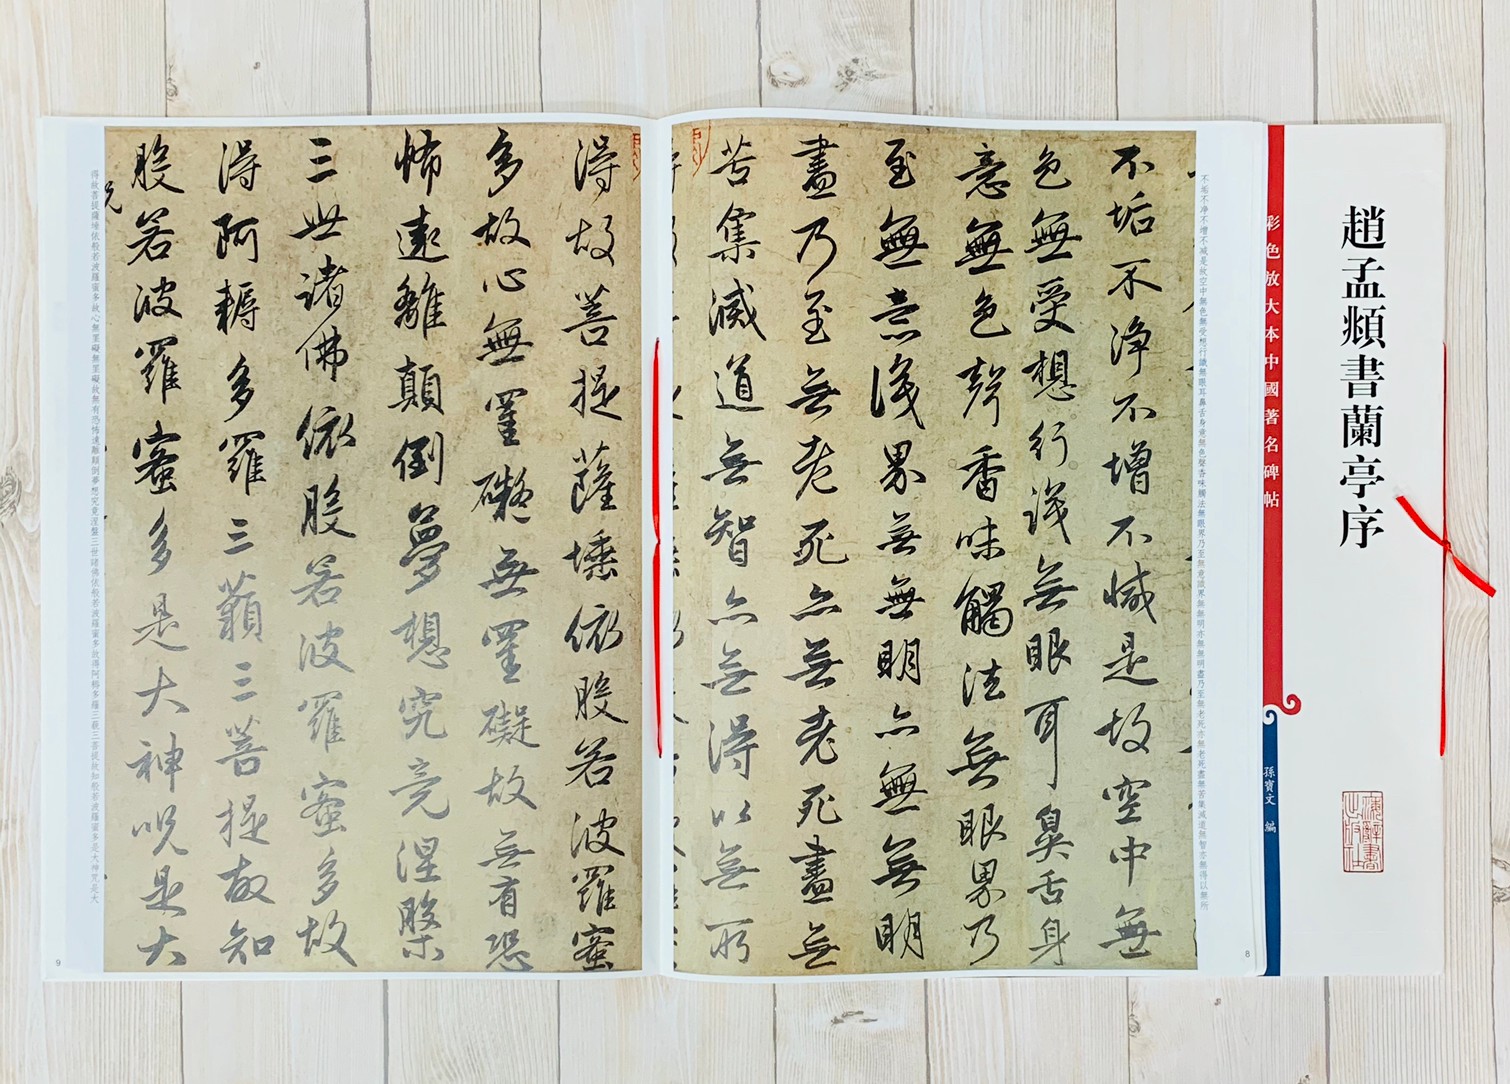 趙孟頫書蘭亭序
彩色放大本中國著名碑帖
孫寶文 編
不垢不淨不增不減是故空中無
色無受想行識無眼耳鼻舌身
意無色聲香味觸法無眼界乃
至無意識界無無明亦無無明
盡乃至無老死亦無老死盡無
苦集滅道無智亦無得以無所
8
得故菩提薩埵依般若波羅蜜
多故心無罣礙無罣礙故無有恐
怖遠離顛倒夢想究竟涅槃
三世諸佛依般若波羅蜜多故
得阿耨多羅三藐三菩提故知
般若波羅蜜多是大神咒是大
9
不垢不淨不增不減是故空中無色無受想行識無眼耳鼻舌身意無色聲香味觸法無眼界乃至無意識界無無明亦無無明盡乃至無老死亦無老死盡無苦集滅道無智亦無得以無所
得故菩提薩埵依般若波羅蜜多故心無罣礙無罣礙故無有恐怖遠離顛倒夢想究竟涅盤三世諸佛依般若波羅蜜多故得阿耨多羅三藐三菩提故知般若波羅蜜多是大神咒是大
上海辭書出版社